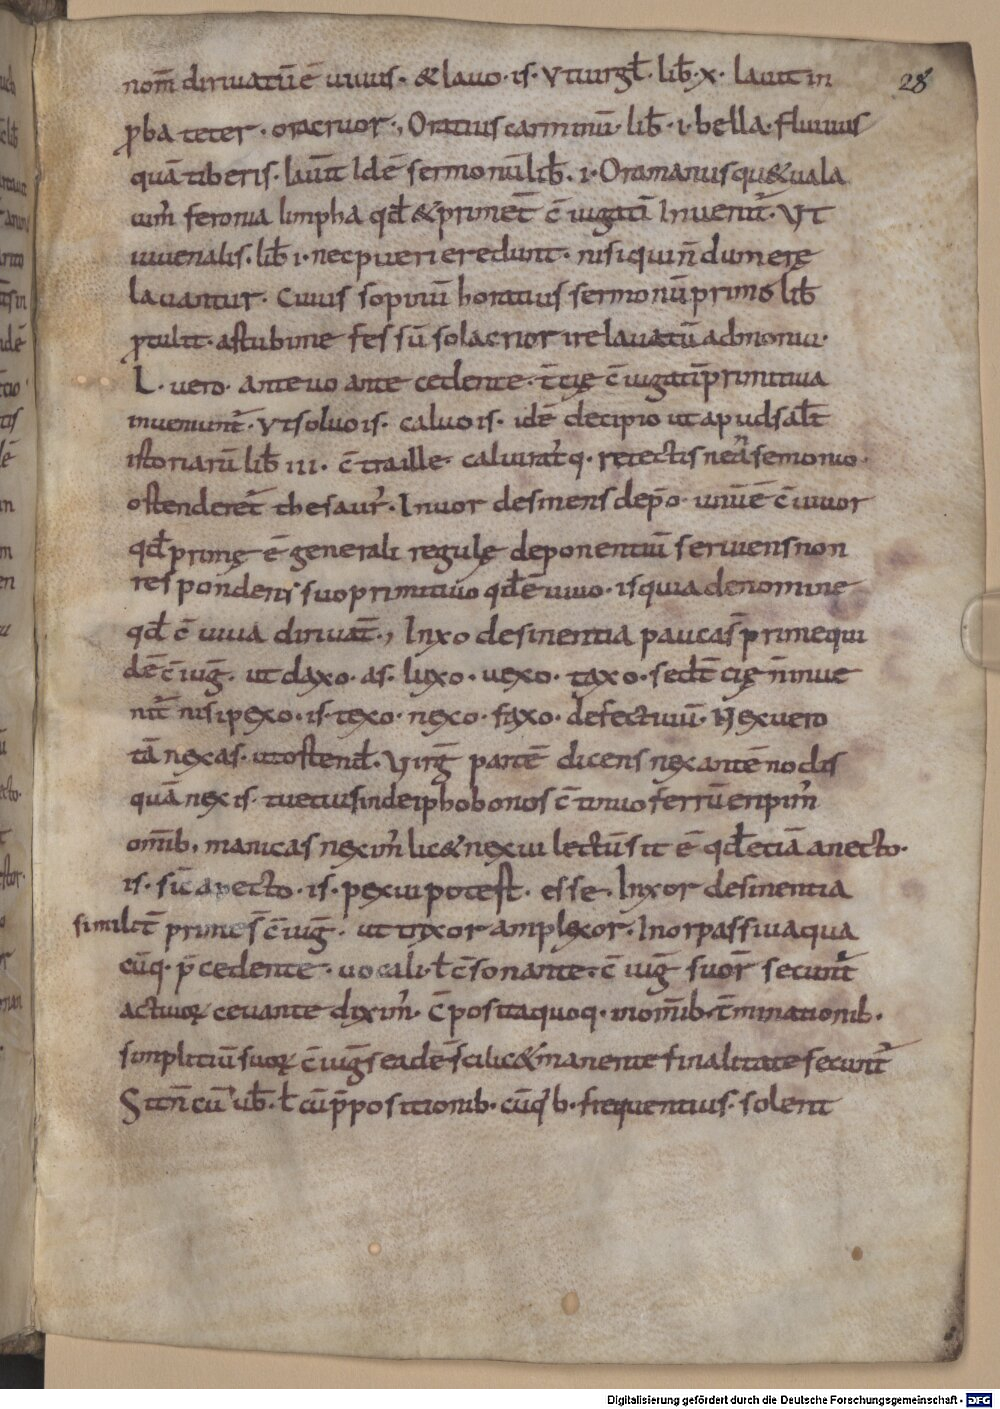 nom̄ diriuatū ē uiuus · & lauo · is · Vt uirgł · lib̄ · x · lauit in
ꝓba teter · ora cruor ·, Oratius carminū · lib̄ · i · bella · fluuius
quā tiberis · lauit Idē sermonū lib̄ · i · Ora manus qu& uala
 feronia limpha qd̄ & primē c̄iugatī Inuenit̄ · Vt
iuuenalis · lib̄ i · nec pueri eredunt · nisi qui n̄dum erę
lauantur · Cuius sopinū horatius sermonū primo lib̄
ꝓtulit · astubime fessū sol acrior ire lauatū admonui ·
L · uero · ante uo antecedente · t̄cię c̄iugatī primitiua
inueniunt̄ · Vt soluo is · caluo is · idē decipio ut apud sal̄t
istoriarū lib̄ iii · c̄tra ille · caluirat̄q · retectis semonio ·
ostenderet̄ thesaur̄ · In uor desinens depo · unū ē c̄ iuuor
qd̄ primę ē generali regulę deponentiū seruiens non
respondens suo primitiuo qd̄ ē iuuo · is quia de nomine
qd̄ ē uiua diriuat̄ ·, In xo desinentia paucas primę qui
dē c̄iuḡ · ut daxo · as · luxo · uexo · taxo · sed t̄cię n̄ inue
nit̄ nisi pexo · is · texo · nexo · faxo · defectiuū · Nexuero
tā nexas · ut ostend̄ · Virḡ partē dicens nexantē nodis
quā nexis · tuetius inde iphobonos c̄tinuo ferrū eripim̄
omīb · manicas nexim̄ lic& nexui lectū sit ē qd̄ etiā anecto ·
is · sic̄ apecto · is · pexui potest · esse · In xor desinentia
similit̄ prime s̄ c̄iuḡ · ut tixor amplexor · In or passiua qua
cūq · p̄cedente · uocali · ł c̄sonante · c̄iuḡ suor̄ secunt̄
actiuoꝝ ceu ante dixim̄ · C̄posita quoq · in om̄ib · t̄minationib ·
simplitiū suoꝝ c̄iuḡs eadē scilic& manente finalitate secunt̄
Sit n̄ cū ub̄ · ł cū p̄positionib · cū quib · frequentius · solent
28
Digitalisierung gefördert durch die Deutsche Forschungsgemeinschaft - DFG